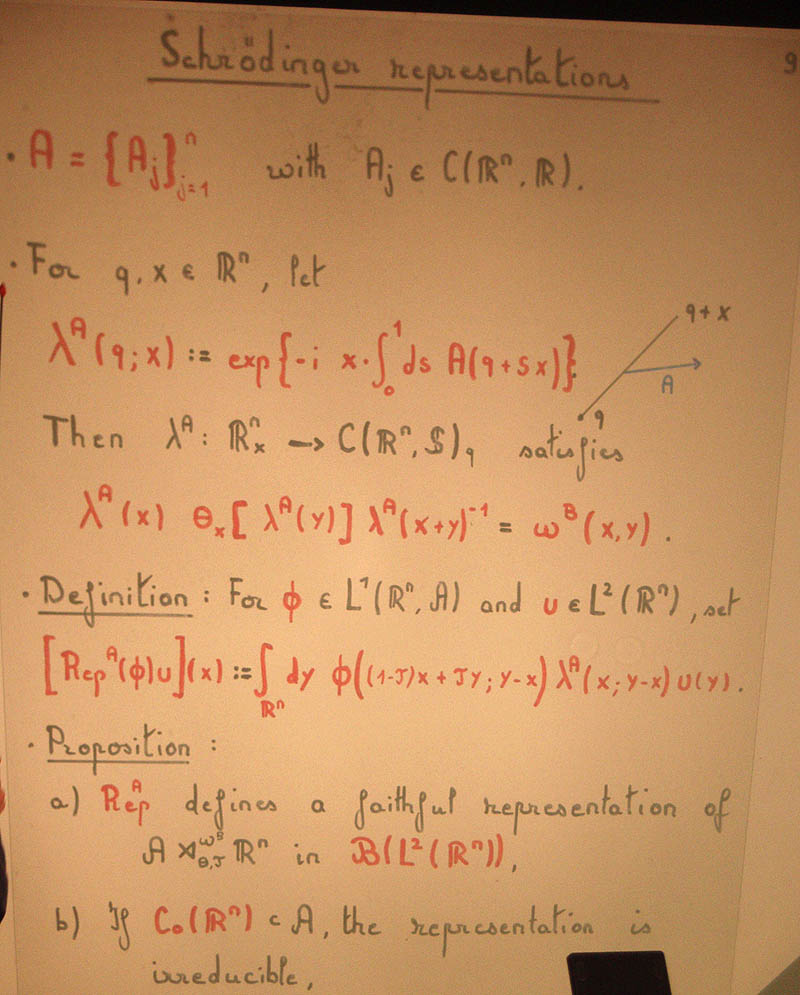 Schrödinger representations
9
• A = {A_j}_{j=1}^n with A_j ∈ C(ℝ^n, ℝ).
• For q, x ∈ ℝ^n, let
λ^A(q; x) := exp{-i x·∫_0^1 ds A(q+sx)}
q+x
A
q
Then λ^A : ℝ^n_x → C(ℝ^n, 𝕊)_q satisfies
λ^A(x) θ_x[λ^A(y)] λ^A(x+y)^{-1} = ω^B(x,y).
• Definition : For ϕ ∈ L^1(ℝ^n, 𝒜) and u ∈ L^2(ℝ^n), set
[Rep^A(ϕ)u](x) := ∫_{ℝ^n} dy ϕ((1-τ)x + τy; y-x) λ^A(x; y-x) u(y).
• Proposition :
a) Rep^A defines a faithful representation of
𝒜 ⋊^{ω^B}_{θ,τ} ℝ^n in ℬ(L^2(ℝ^n)),
b) If C_0(ℝ^n) ⊂ 𝒜, the representation is
irreducible,